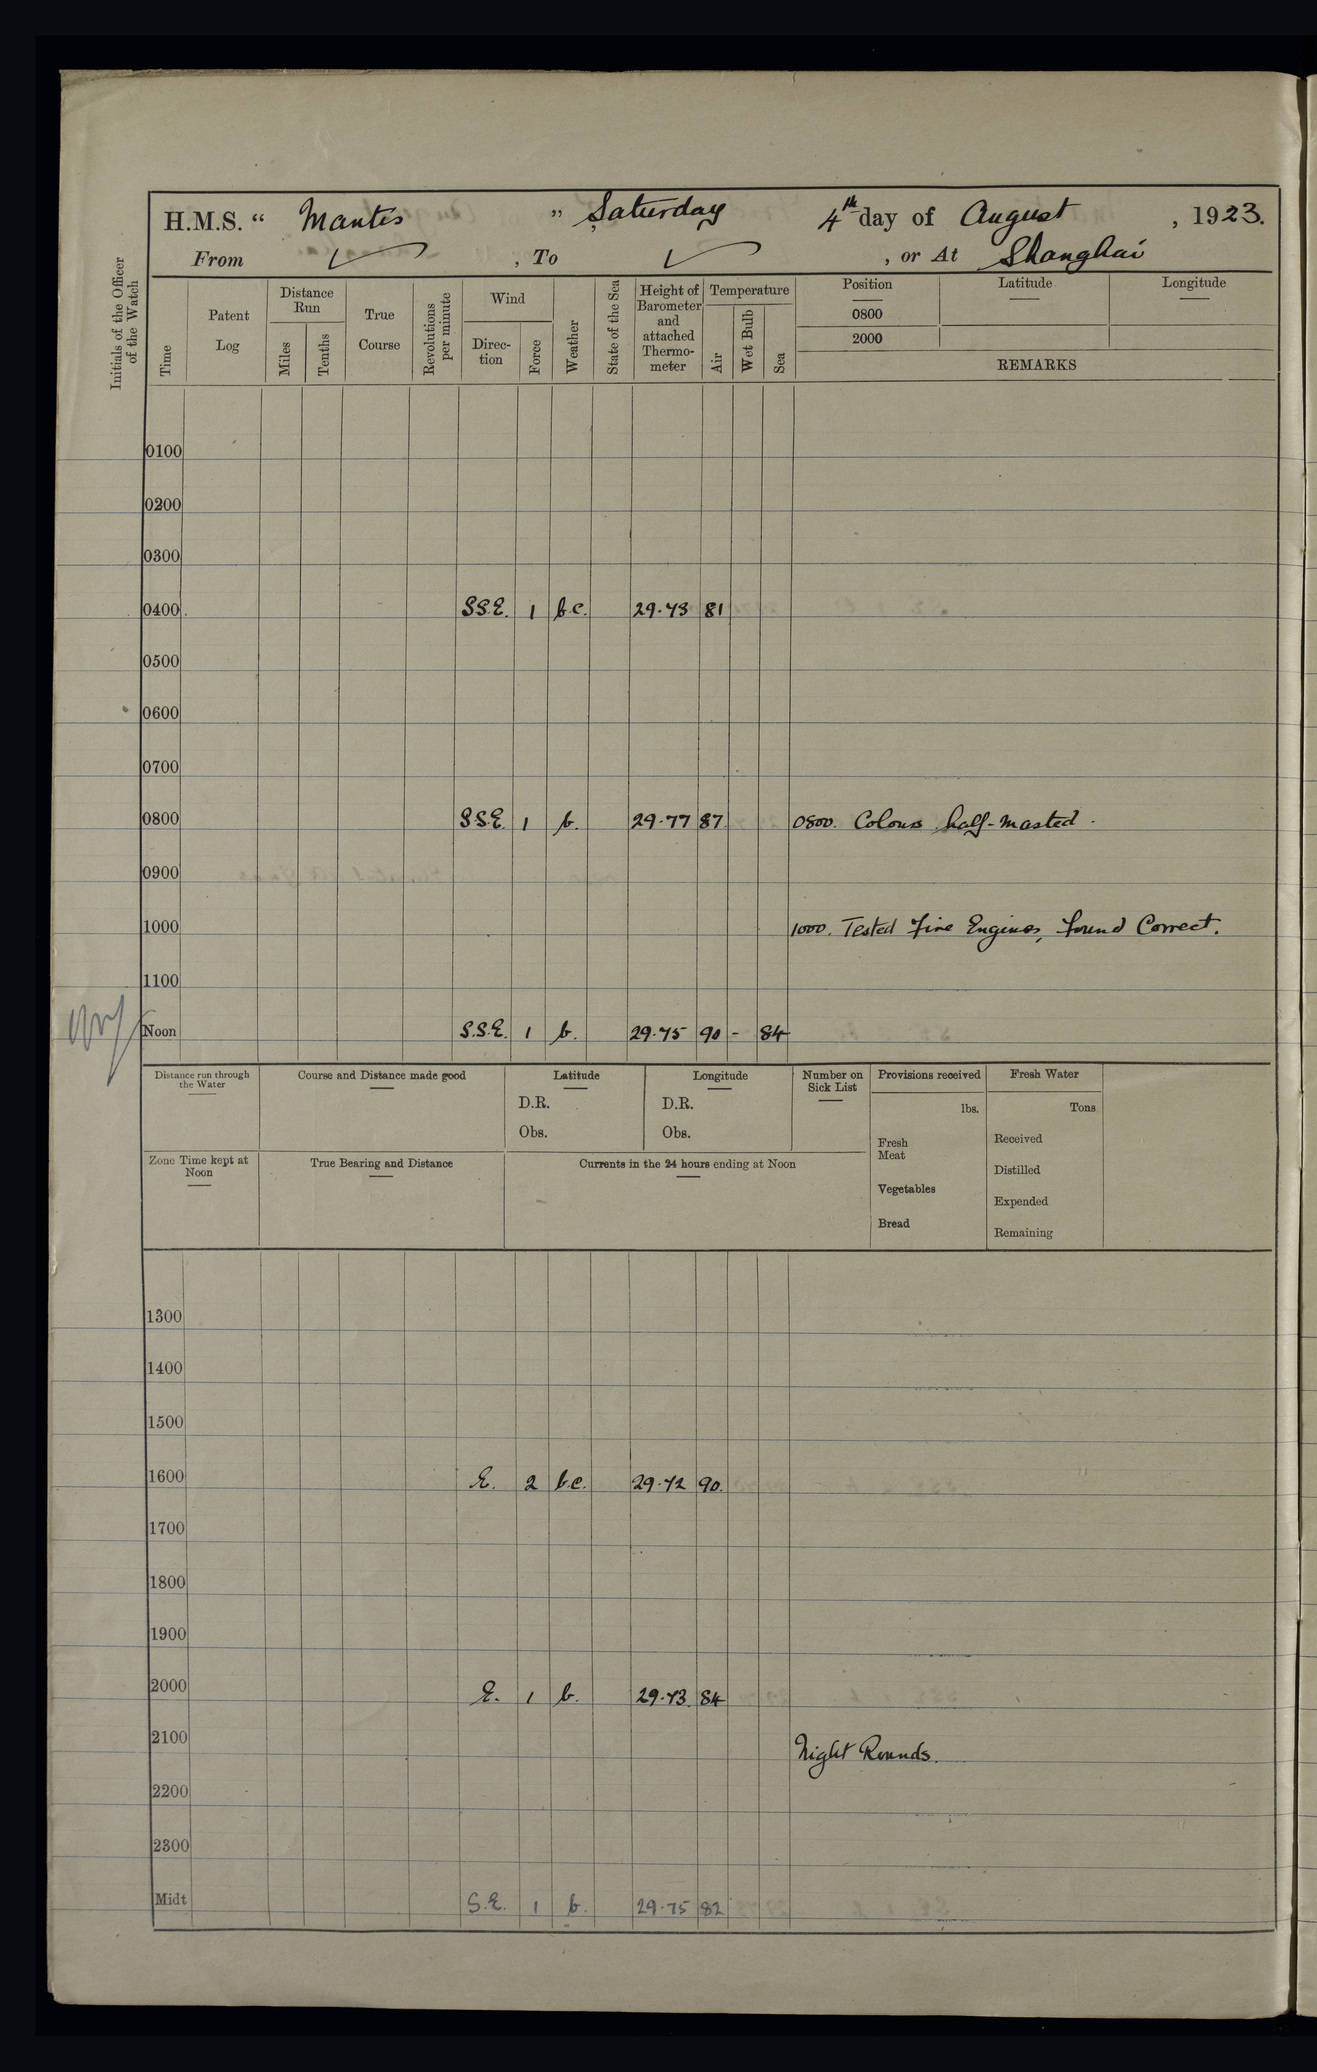 H.M.S. “ Mantis ” Saturday 4th day of August , 1923.
From ✓ , To ✓ , or At Shanghai
Initials of the Officer of the Watch
Time
Patent Log
Distance Run
Miles
Tenths
True Course
Revolutions per minute
Wind
Direc-tion
Force
Weather
State of the Sea
Height of Barometer and attached Thermo-meter
Temperature
Air
Wet Bulb
Sea
Position Latitude Longitude
0800
2000
REMARKS
0100
0200
0300
0400 S.S.E. 1 b.c. 29.73 81
0500
0600
0700
0800 S.S.E. 1 b. 29.77 87 0800. Colours half-masted.
0900
1000 1000. Tested Fire Engines, found Correct.
1100
Noon S.S.E. 1 b. 29.75 90 - 84
Distance run through the Water
Course and Distance made good
Latitude
D.R.
Obs.
Longitude
D.R.
Obs.
Number on Sick List
Provisions received
lbs.
Fresh Meat
Vegetables
Bread
Fresh Water
Tons
Received
Distilled
Expended
Remaining
Zone Time kept at Noon
True Bearing and Distance
Currents in the 24 hours ending at Noon
1300
1400
1500
1600 E. 2 b.c. 29.72 90.
1700
1800
1900
2000 E. 1 b. 29.73. 84
2100 Night Rounds.
2200
2300
Midt S.E. 1 b. 29.75 82